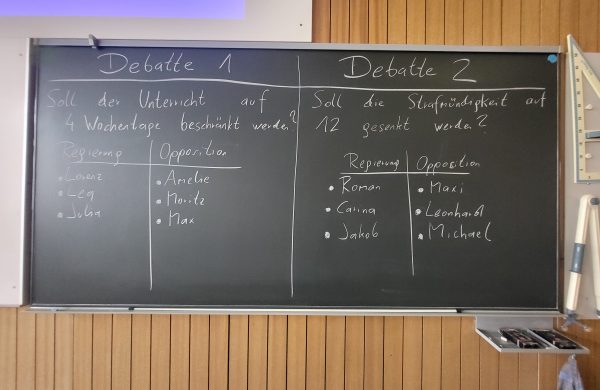 Debatte 1
Soll der Unterricht auf
4 Wochentage beschränkt werden?
Regierung Opposition
• Lorenz • Amelie
• Lea • Moritz
• Julia • Max
Debatte 2
Soll die Strafmündigkeit auf
12 gesenkt werden?
Regierung Opposition
• Roman • Maxi
• Carina • Leonhard
• Jakob • Michael